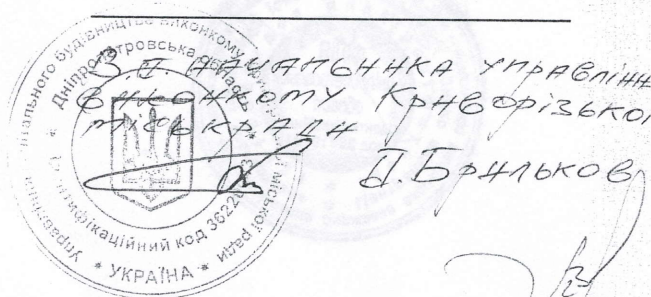 З.П. НАЧАЛЬНИКА УПРАВЛІНН
ВИКОНКОМУ КРИВОРІЗЬКОЇ
МІСЬКРАДИ
П. БРИЛЬКОВ
Управління капітального будівництва виконкому міської ради
* УКРАЇНА *
Дніпропетровська область
Ідентифікаційний код 3622